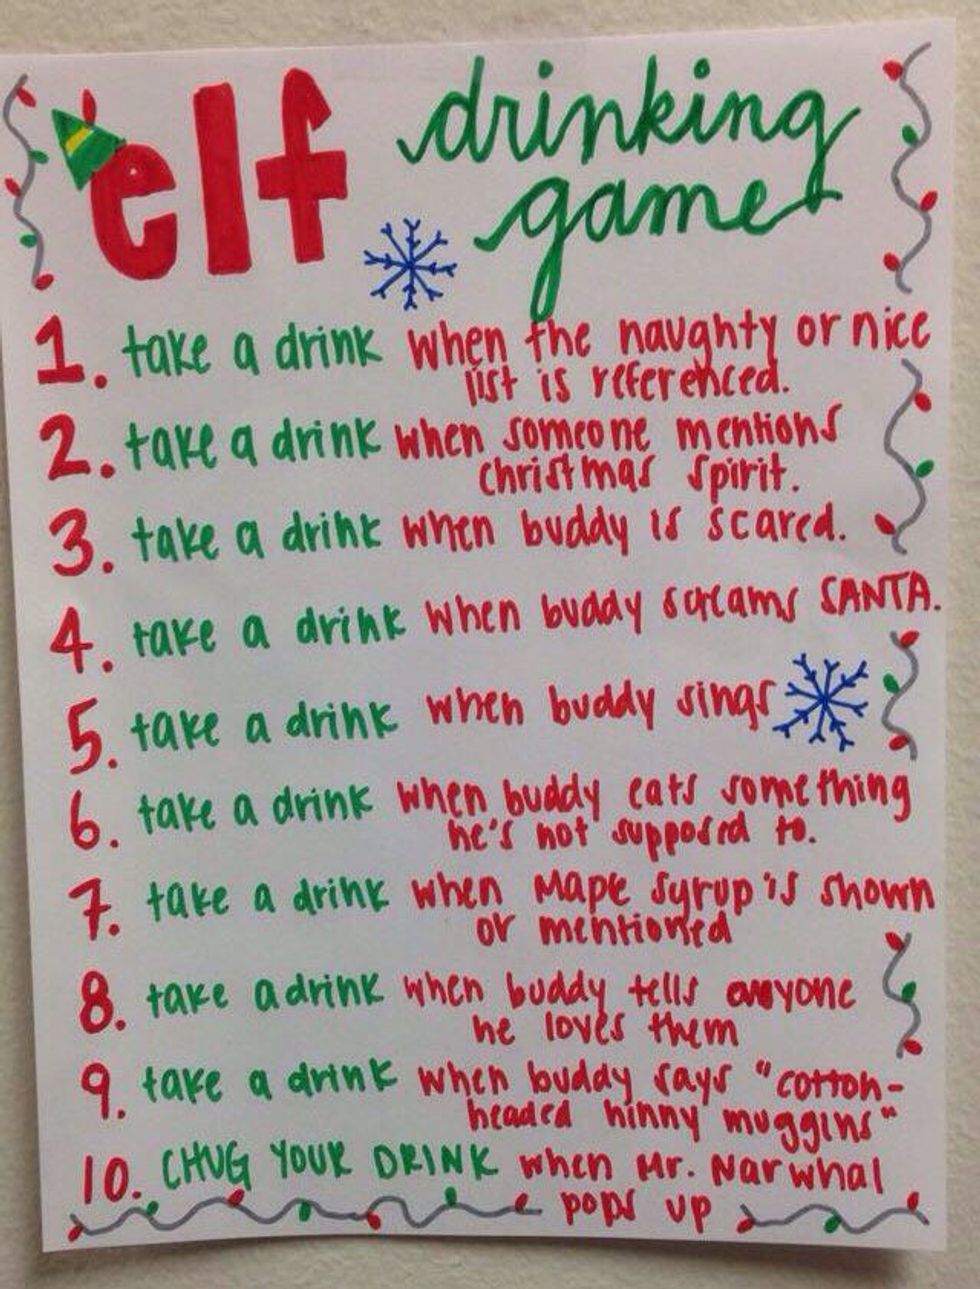 elf drinking
game
1. take a drink when the naughty or nice
list is referenced.
2. take a drink when someone mentions
christmas spirit.
3. take a drink when buddy is scared.
4. take a drink when buddy screams SANTA.
5. take a drink when buddy sings
6. take a drink when buddy eats something
he's not supposed to.
7. take a drink when maple syrup is shown
or mentioned
8. take a drink when buddy tells anyone
he loves them
9. take a drink when buddy says "cotton-
headed ninny muggins"
10. CHUG YOUR DRINK when Mr. Narwhal
pops up